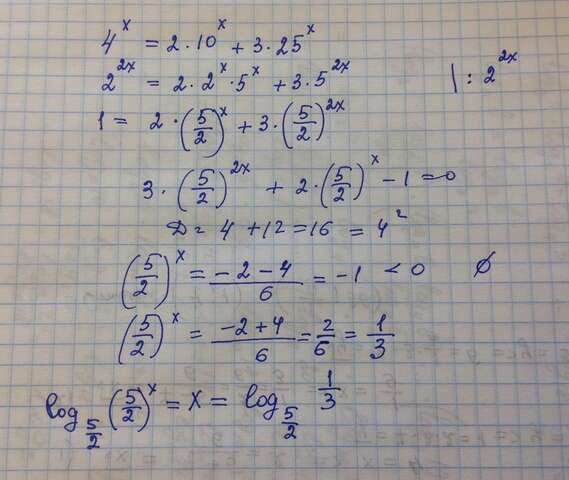 4^x = 2·10^x + 3·25^x
2^{2x} = 2·2^x·5^x + 3·5^{2x} |: 2^{2x}
1 = 2·(5/2)^x + 3·(5/2)^{2x}
3·(5/2)^{2x} + 2·(5/2)^x - 1 = 0
D = 4 + 12 = 16 = 4^2
(5/2)^x = (-2-4)/6 = -1 < 0 ∅
(5/2)^x = (-2+4)/6 = 2/6 = 1/3
log_{5/2} (5/2)^x = x = log_{5/2} 1/3